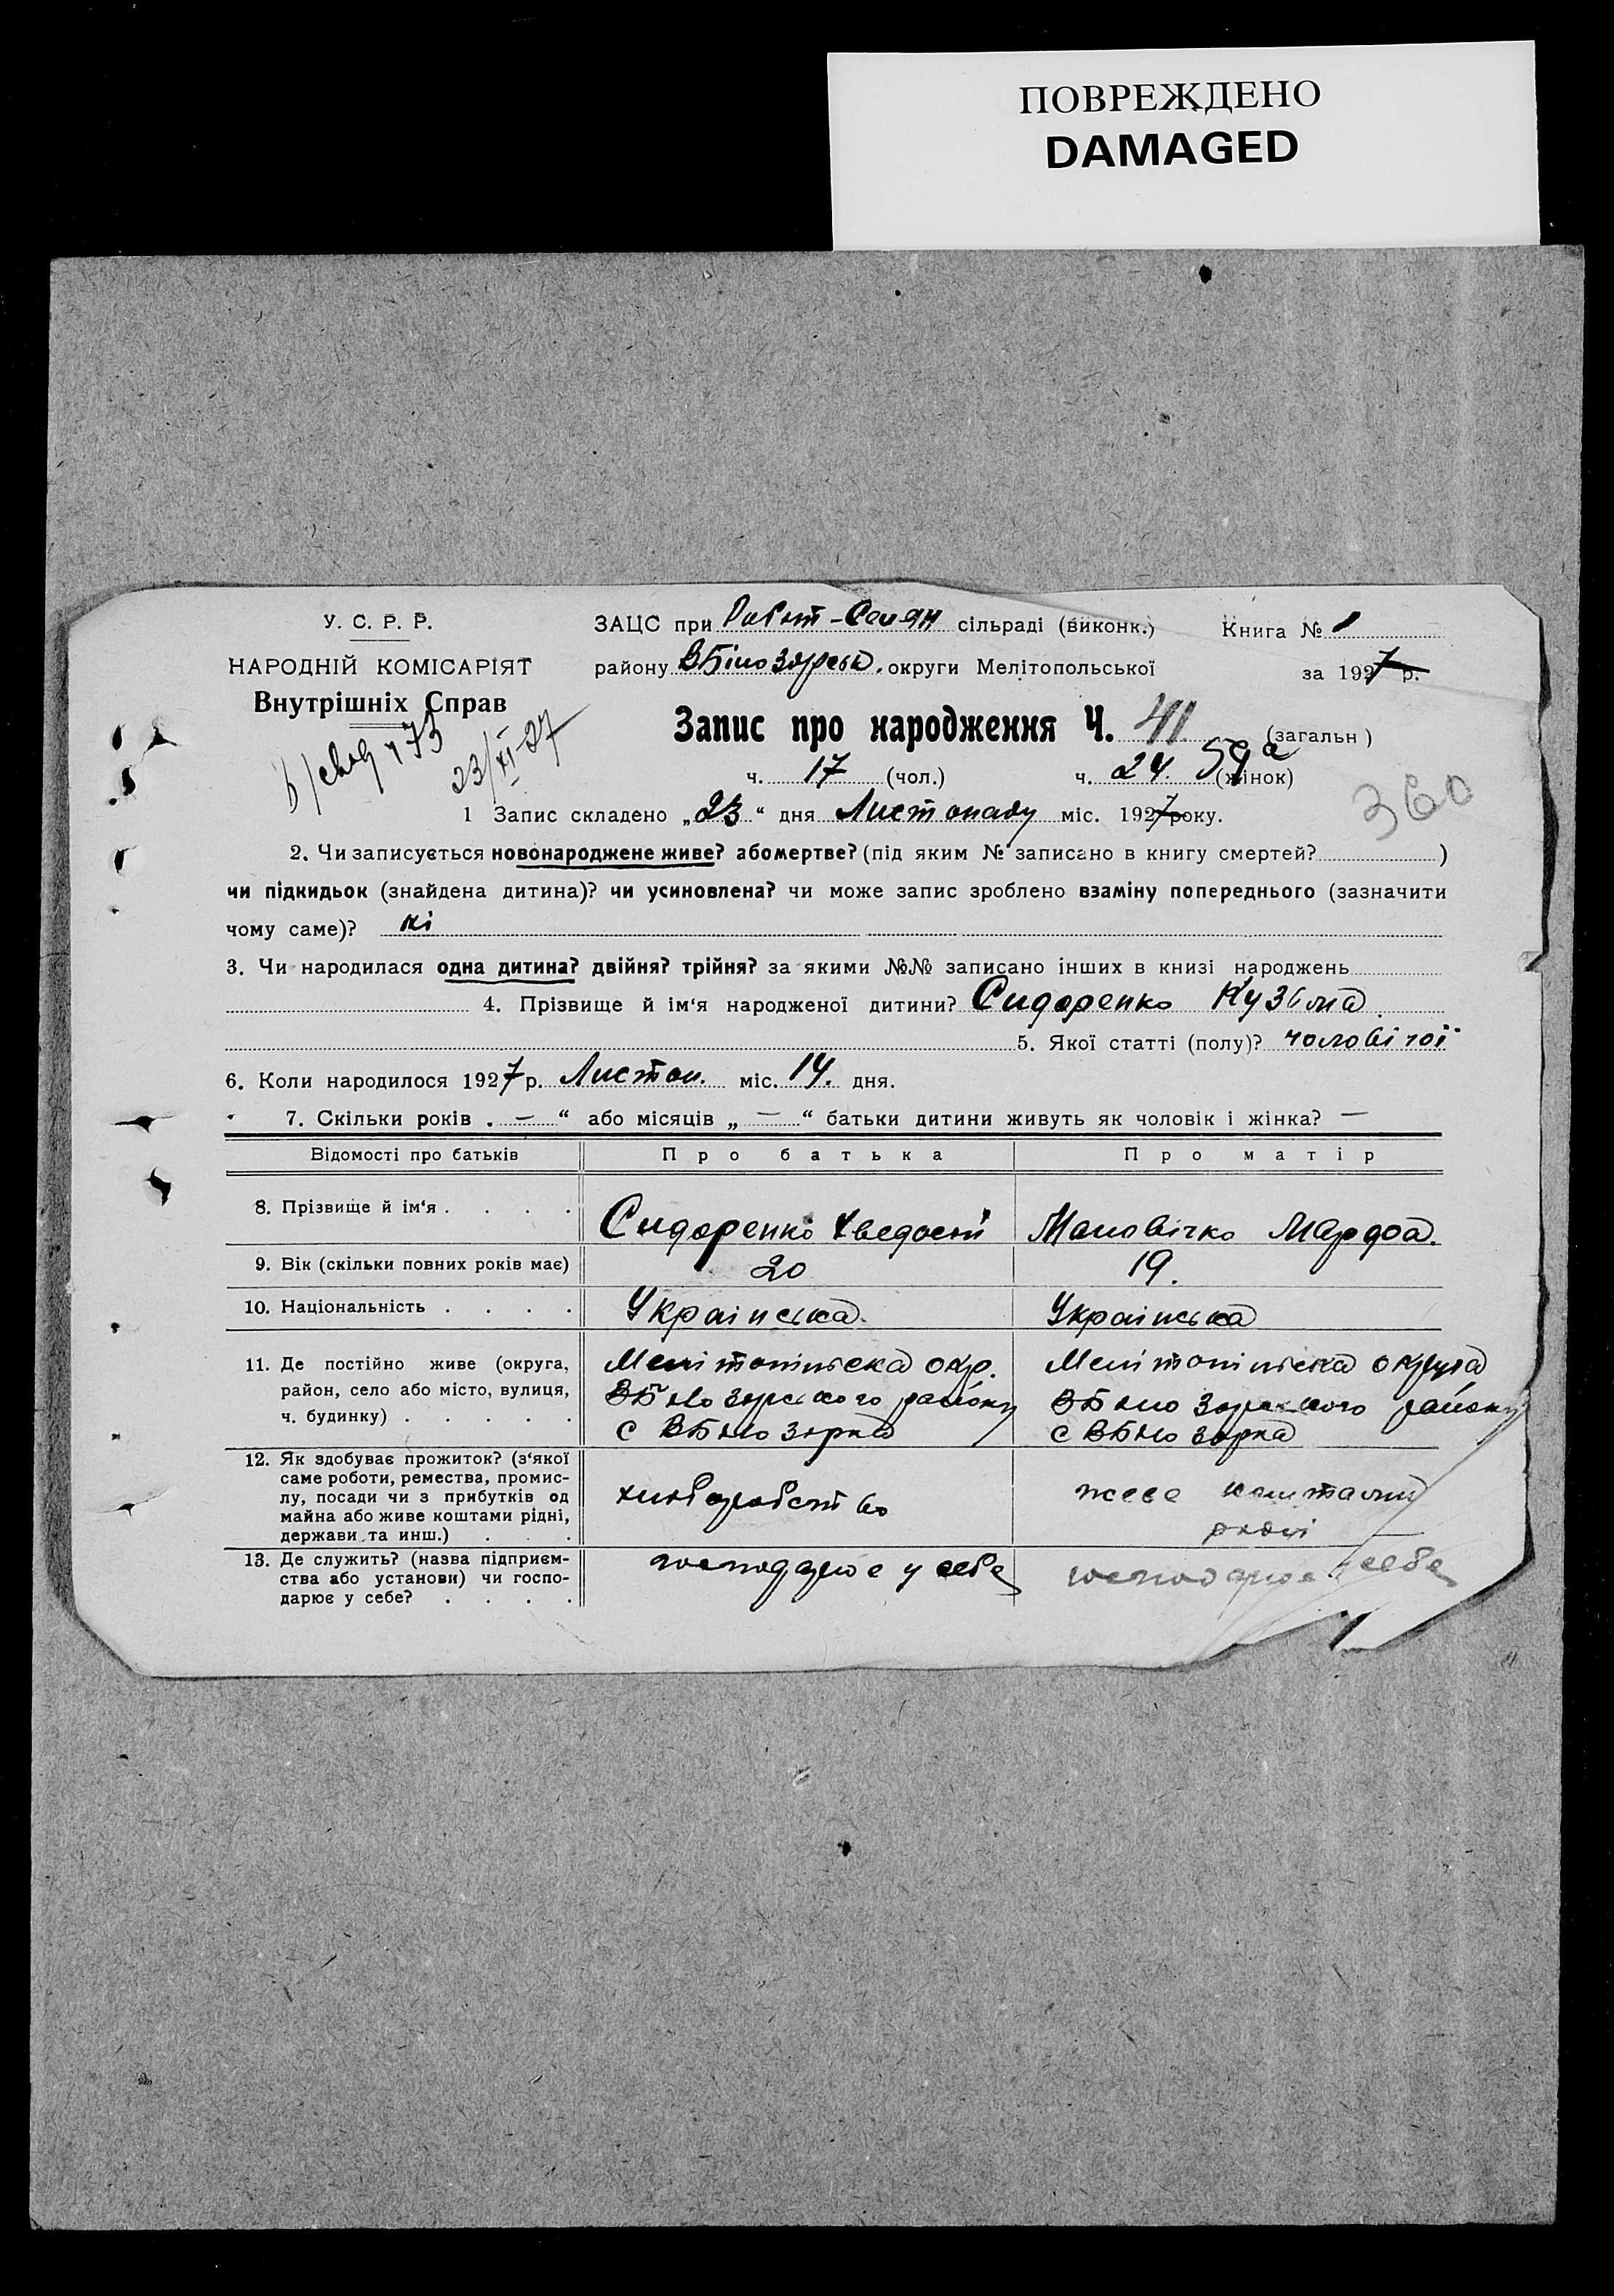 ПОВРЕЖДЕНО
DAMAGED
У. С. Р. Р.
НАРОДНІЙ КОМІСАРІЯТ
Внутрішніх Справ
173
23/XI-27
ЗАЦС при Робіт-Селян сільраді (виконк.)
району ВБілозірськ. округи Мелітопольської
Книга № 1
за 1927 р.
Запис про народження Ч. 41 (загальн)
ч. 17 (чол.) ч. 24. (жінок)
59а
360
1 Запис складено „23“ дня Листопаду міс. 1927 року.
2. Чи записується новонароджене живе? або мертве? (під яким № записано в книгу смертей? )
чи підкидьок (знайдена дитина)? чи усиновлена? чи може запис зроблено взаміну попереднього (зазначити
чому саме)? ні
3. Чи народилася одна дитина? двійня? трійня? за якими №№ записано інших в книзі народжень
4. Прізвище й ім‘я народженої дитини? Сидоренко Кузьма
5. Якої статті (полу)? чоловічої
6. Коли народилося 1927 р. Листоп. міс. 14. дня.
7. Скільки років „ — “ або місяців „ — “ батьки дитини живуть як чоловік і жінка? —
Відомості про батьків Про батька Про матір
8. Прізвище й ім‘я . . . . Сидоренко Хведосій Маловічко
9. Вік (скільки повних років має) 20 19.
10. Національність . . . . Українська Українська
11. Де постійно живе (округа, район, село або місто, вулиця, ч. будинку) . . . . .
Мелітопільска окр. Мелітопільска округа
ВБілозорського району ВБілозорського району
с ВБілозорка с ВБілозорка
12. Як здобуває прожиток? (з‘якої саме роботи, ремества, промислу, посади чи з прибутків од майна або живе коштами рідні, держави та инш.) . . .
хліборобство живе коштами
рідні
13. Де служить? (назва підприємства або установи) чи господарює у себе? . . . .
господарює у себе господарює у себе